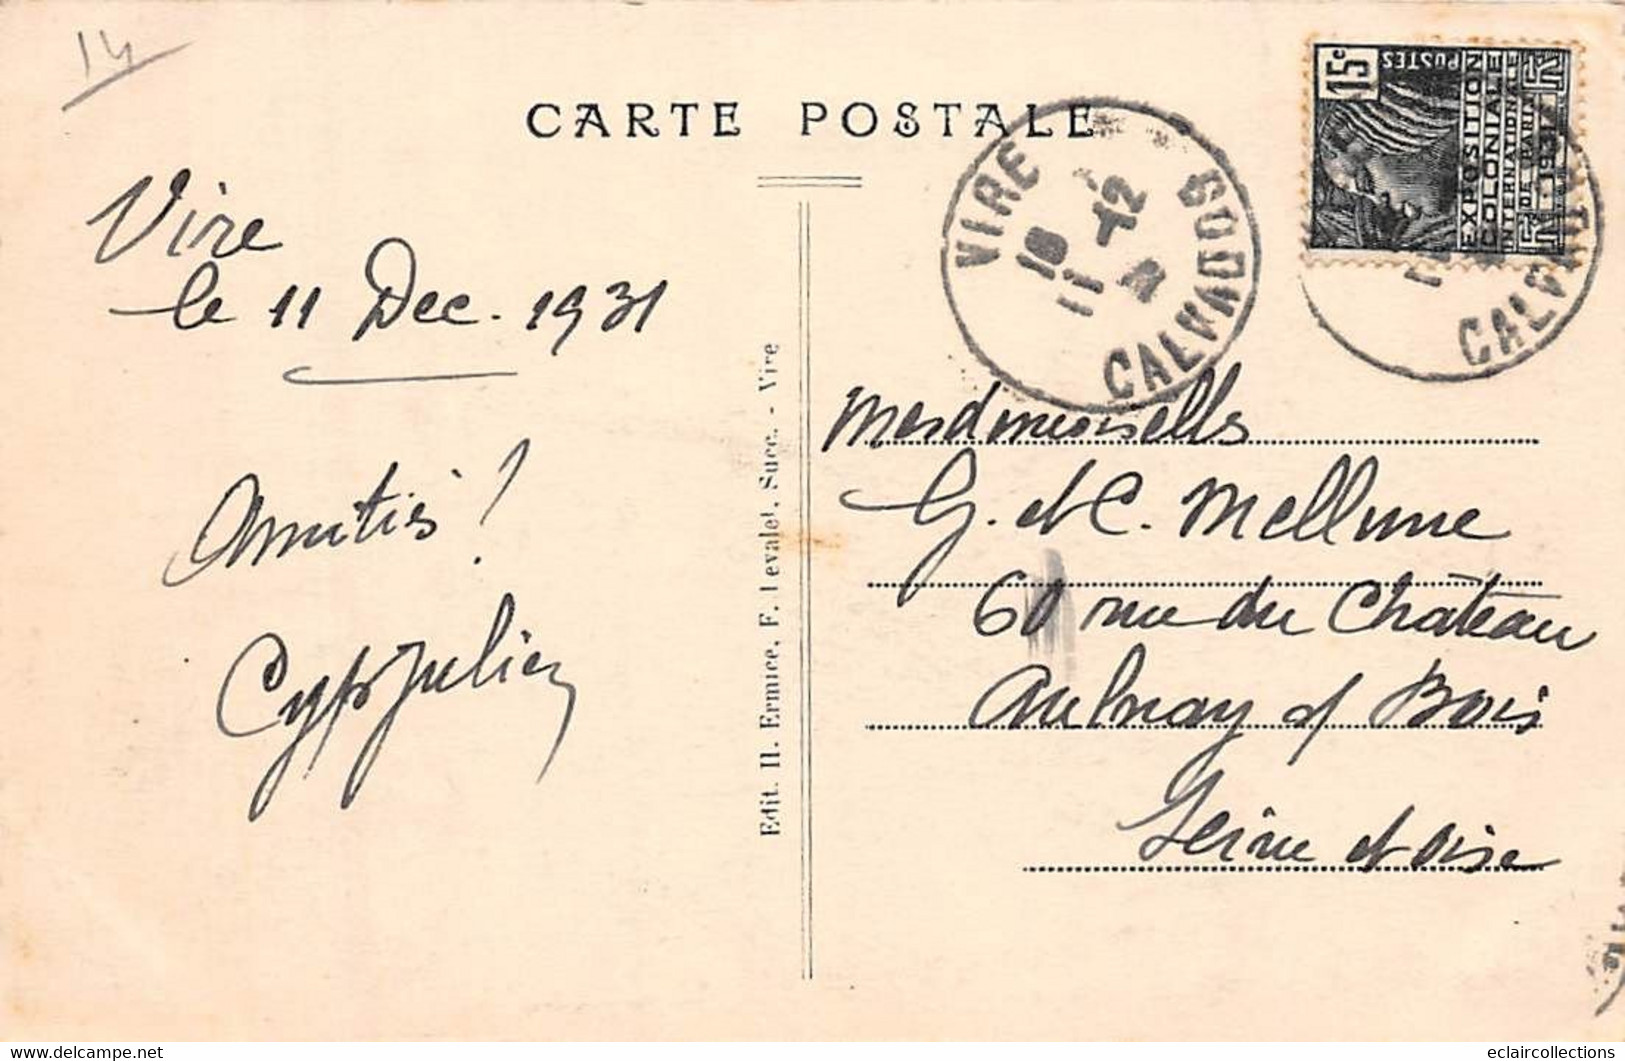 14
CARTE POSTALE
Vire
le 11 Dec. 1931
Amitiés !
Edit. H. Ermice, F. Levalet, Succ. - Vire
VIRE
CALVADOS
18
11 -12
31
15c
POSTES
EXPOSITION
COLONIALE
INTERNATIONALE
DE PARIS
1931
CALVADOS
Mesdemoiselles
G. et C. Mellune
60 rue du Château
Aulnay s/ Bois
Seine et Oise
eclaircollections